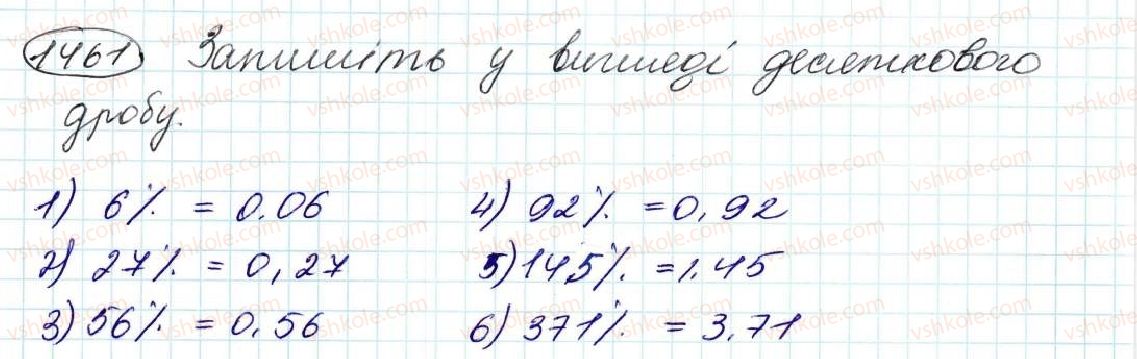 1461 Запишіть у вигляді десяткового
дробу.
1) 6% = 0.06
2) 27% = 0,27
3) 56% = 0.56
4) 92% = 0,92
5) 145% = 1.45
6) 371% = 3,71
vshkole.com